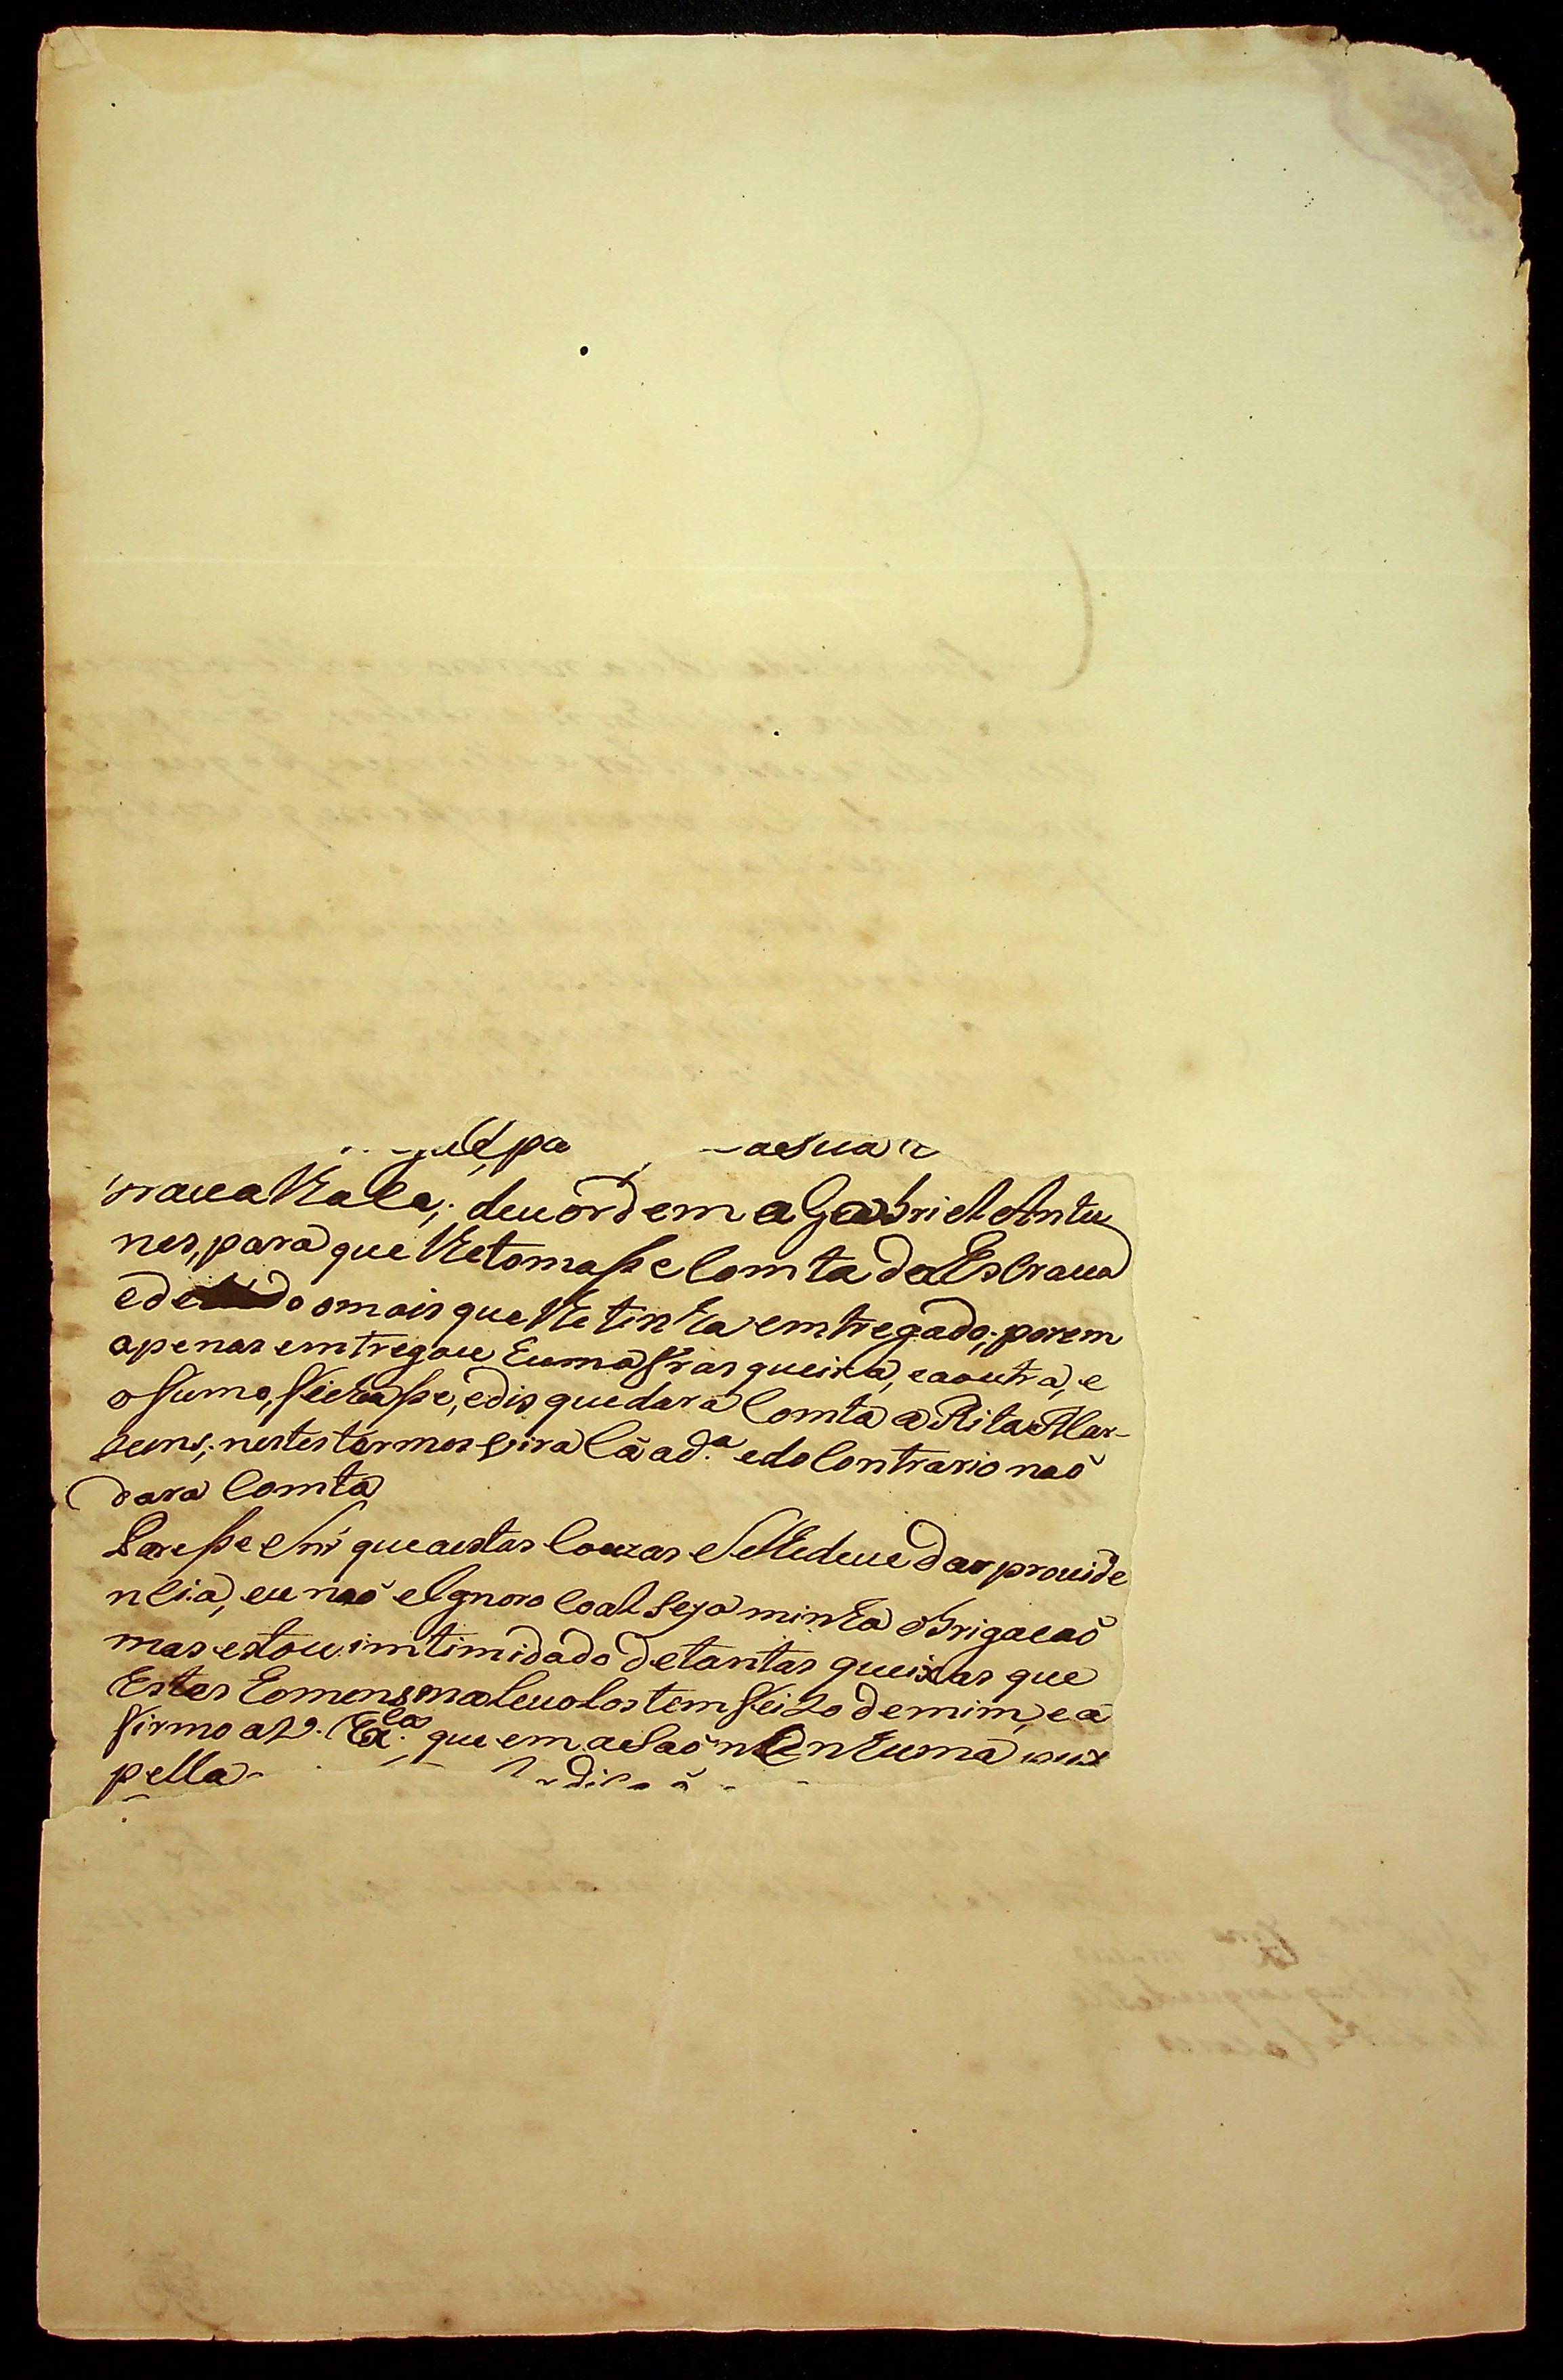 pa a sua
 deu ordem a Gabriel Antu
nes, para que lhe tomasse comta da Escraua
e de do o mais que lhe tinha emtregado; porem
apenas emtregou huma frasqueira, e a outra, e
o fumo, e dis que dara comta a Rita Mar-
 nestes termos hira lá a d.ª e do contrario naõ
dara Comta
Paresse que a estas couzas se lhe deue dar prouide
ncia, eu naõ eIgnoro coal seja minha obrigacaõ
mas estou imtimidado de tantas queixas que
Estes homens maleuolos tem feito de mim, e a
firmo a V. Ex.cia que em acsaõ nenhuma
pella